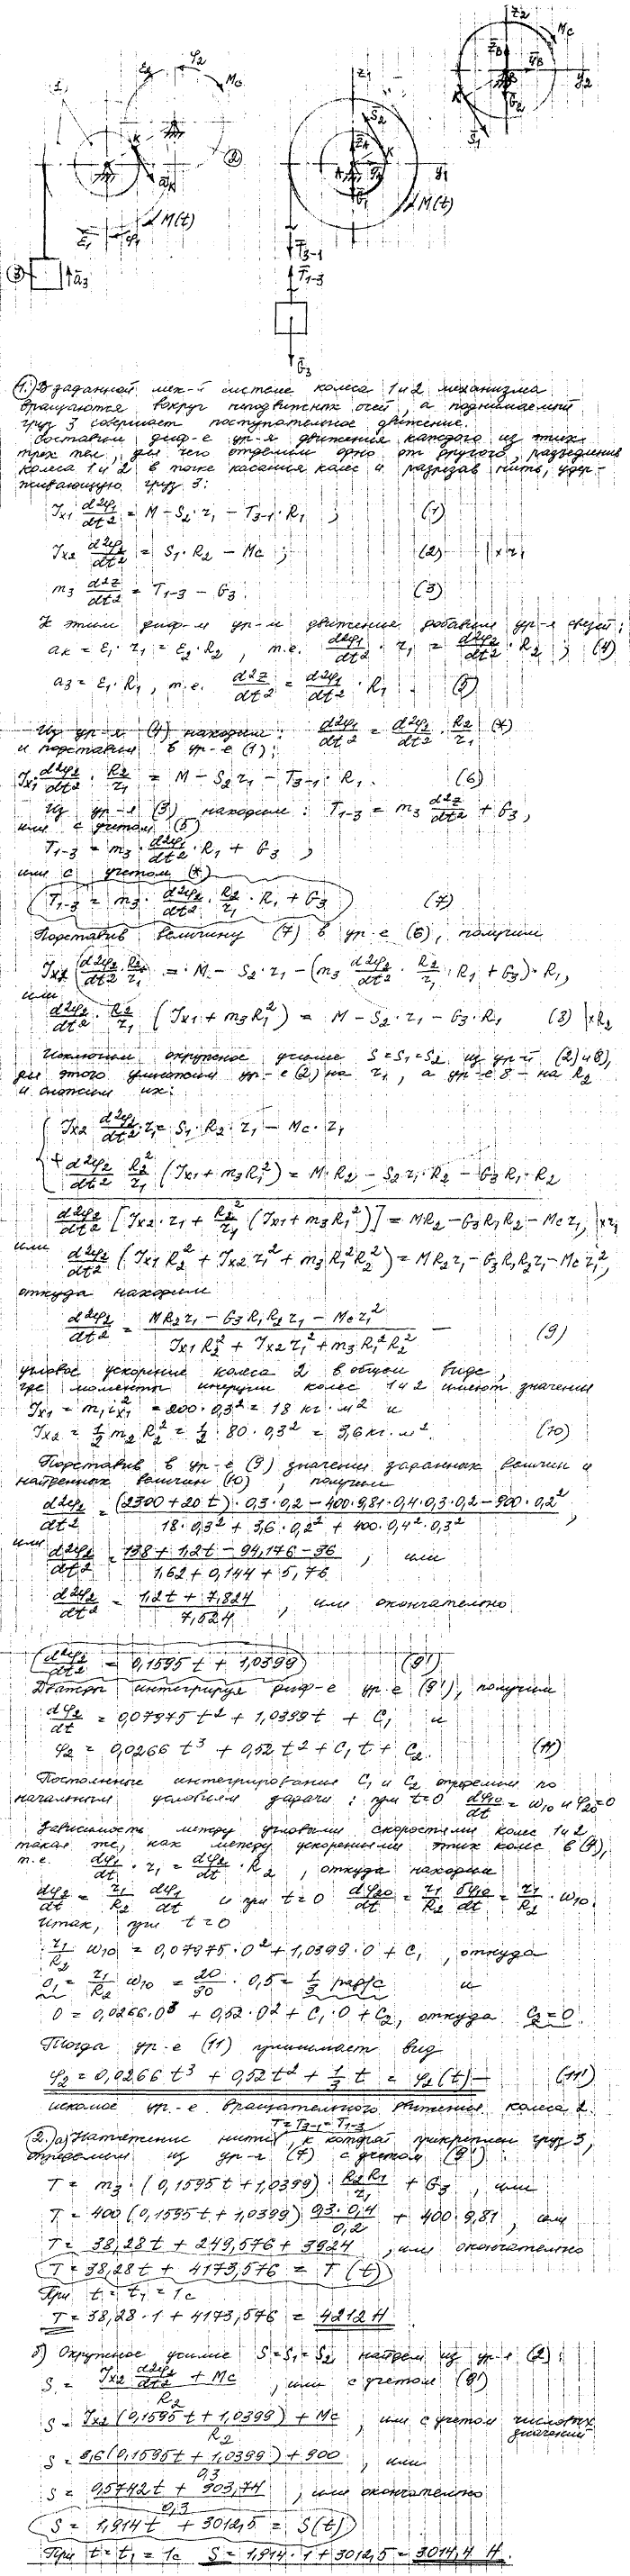 z₂
M_c
z̄_B
ȳ_B
B
y₂
Ḡ₂
K
S̄₁
1
ε₂
φ₂
M_c
K
2
ā_K
M(t)
ε̄₁ φ₁
3
ā₃
z₁
S̄₂
z̄_A
K
A
y₁
Ḡ₁
M(t)
T̄₃₋₁
T̄₁₋₃
Ḡ₃
1. В заданной мех-й системе колеса 1 и 2 механизма
вращаются вокруг неподвижных осей, а поднимаемый
груз 3 совершает поступательное движение.
Составим диф-е ур-я движения каждого из этих
трех тел, для чего отделим одно от другого, разъединив
колеса 1 и 2 в точке касания колес и разрезав нить, удер-
живающую груз 3:
Jx1 d²φ₁/dt² = M − S₂·r₁ − T₃₋₁·R₁ ; (1)
Jx2 d²φ₂/dt² = S₁·R₂ − Mc ; (2) |×r₁
m₃ d²z/dt² = T₁₋₃ − G₃. (3)
К этим диф-м ур-м движения добавим ур-я связей:
a_K = ε₁·r₁ = ε₂·R₂, т.е. d²φ₁/dt²·r₁ = d²φ₂/dt²·R₂ ; (4)
a₃ = ε₁·R₁, т.е. d²z/dt² = d²φ₁/dt²·R₁. (5)
Из ур-я (4) находим: d²φ₁/dt² = d²φ₂/dt²·R₂/r₁ (*)
и подставим в ур-е (1):
Jx1 d²φ₂/dt²·R₂/r₁ = M − S₂r₁ − T₃₋₁·R₁. (6)
Из ур-я (3) находим: T₁₋₃ = m₃ d²z/dt² + G₃,
или с учетом (5)
T₁₋₃ = m₃·d²φ₁/dt²·R₁ + G₃ ,
или с учетом (*)
T₁₋₃ = m₃·d²φ₂/dt²·R₂/r₁·R₁ + G₃ (7)
Подставив величину (7) в ур-е (6), получим
Jx1 (d²φ₂/dt²·R₂/r₁) = M − S₂·r₁ − (m₃ d²φ₂/dt²·R₂/r₁·R₁ + G₃)·R₁,
или
d²φ₂/dt²·R₂/r₁ (Jx1 + m₃R₁²) = M − S₂·r₁ − G₃·R₁ (8) |×R₂
Исключим окружное усилие S = S₁ = S₂ из ур-й (2) и 8),
для этого умножим ур-е (2) на r₁, а ур-е 8 – на R₂
и сложим их:
Jx2 d²φ₂/dt²·r₁ = S₁·R₂·r₁ − Mc·r₁
+ d²φ₂/dt² R₂²/r₁ (Jx1 + m₃R₁²) = M·R₂ − S₂r₁·R₂ − G₃R₁·R₂
d²φ₂/dt² [Jx2·r₁ + R₂²/r₁ (Jx1 + m₃R₁²)] = MR₂ − G₃R₁R₂ − Mcr₁, |×r₁
или d²φ₂/dt² (Jx1R₂² + Jx2r₁² + m₃R₁²R₂²) = MR₂r₁ − G₃R₁R₂r₁ − Mcr₁²,
откуда находим
d²φ₂/dt² = (MR₂r₁ − G₃R₁R₂r₁ − Mcr₁²)/(Jx1R₂² + Jx2r₁² + m₃R₁²R₂²) — (9)
угловое ускорение колеса 2 в общем виде,
где моменты инерции колес 1 и 2 имеют значения
Jx1 = m₁i²x1 = 200·0,3² = 18 кг·м² и
Jx2 = ½m₂R₂² = ½·80·0,3² = 3,6 кг·м². (10)
Подставив в ур-е (9) значения заданных величин и
найденных величин (10), получим
d²φ₂/dt² = ((2300+20t)·0,3·0,2 − 400·9,81·0,4·0,3·0,2 − 900·0,2²)/(18·0,3² + 3,6·0,2² + 400·0,4²·0,3²) ,
или d²φ₂/dt² = (138 + 1,2t − 94,176 − 36)/(1,62 + 0,144 + 5,76) , или
d²φ₂/dt² = (1,2t + 7,824)/7,524 , или окончательно
d²φ₂/dt² = 0,1595t + 1,0399 (9')
Дважды интегрируя диф-е ур-е (9'), получим
dφ₂/dt = 0,07975t² + 1,0399t + C₁ и
φ₂ = 0,0266t³ + 0,52t² + C₁t + C₂. (11)
Постоянные интегрирования C₁ и C₂ определим по
начальным условиям задачи: при t=0 dφ₁₀/dt = ω₁₀ и φ₂₀=0
Зависимость между угловыми скоростями колес 1 и 2
такая же, как между ускорениями этих колес в (4),
т.е. dφ₁/dt·r₁ = dφ₂/dt·R₂ , откуда находим
dφ₂/dt = r₁/R₂ dφ₁/dt и при t=0 dφ₂₀/dt = r₁/R₂ dφ₁₀/dt = r₁/R₂·ω₁₀.
Итак, при t=0
r₁/R₂ ω₁₀ = 0,07975·0² + 1,0399·0 + C₁ , откуда
C₁ = r₁/R₂ ω₁₀ = 20/30·0,5 = 1/3 рад/с и
0 = 0,0266·0³ + 0,52·0² + C₁·0 + C₂, откуда C₂=0.
Тогда ур-е (11) принимает вид
φ₂ = 0,0266t³ + 0,52t² + 1/3 t = φ₂(t) — (11')
искомое ур-е вращательного движения колеса 2.
T=T₃₋₁=T₁₋₃
2. а) Натяжение нити, к которой прикреплен груз 3,
определим из ур-я (7) с учетом (9'):
T = m₃·(0,1595t + 1,0399) R₂R₁/r₁ + G₃ , или
T = 400(0,1595t + 1,0399) 0,3·0,4/0,2 + 400·9,81 , или
T = 38,28t + 249,576 + 3924 , или окончательно
T = 38,28t + 4173,576 = T(t)
При t = t₁ = 1с
T = 38,28·1 + 4173,576 = 4212 Н
б) Окружное усилие S=S₁=S₂ найдем из ур-я (2):
S = (Jx2 d²φ₂/dt² + Mc)/R₂ , или с учетом (9')
S = (Jx2 (0,1595t + 1,0399) + Mc)/R₂ , или с учетом числовых значений
S = (3,6(0,1595t + 1,0399) + 900)/0,3 , или
S = (0,5742t + 903,74)/0,3 , или окончательно
S = 1,914t + 3012,5 = S(t)
При t=t₁=1с S = 1,914·1 + 3012,5 = 3014,4 Н.